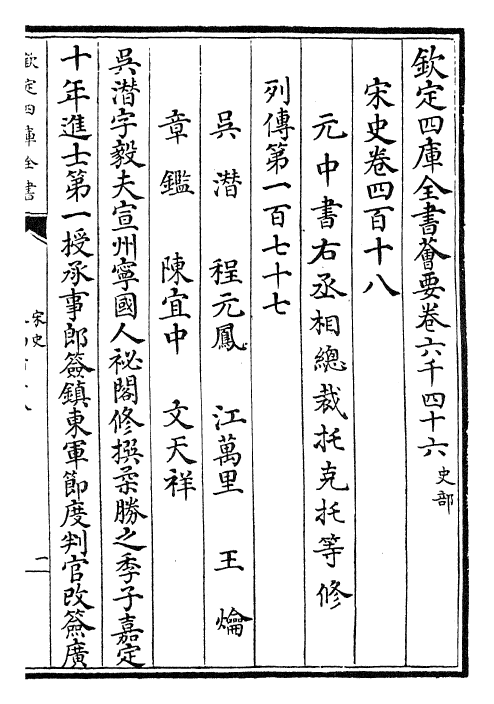 欽定四庫全書薈要卷六千四十六 史部
宋史卷四百十八
元中書右丞相總裁托克托等修
列傳第一百七十七
吳潛 程元鳳 江萬里 王爚
章鑑 陳宜中 文天祥
吳潛字毅夫宣州寧國人祕閣修撰柔勝之季子嘉定
十年進士第一授承事郎簽鎮東軍節度判官改簽廣
欽定四庫全書
宋史